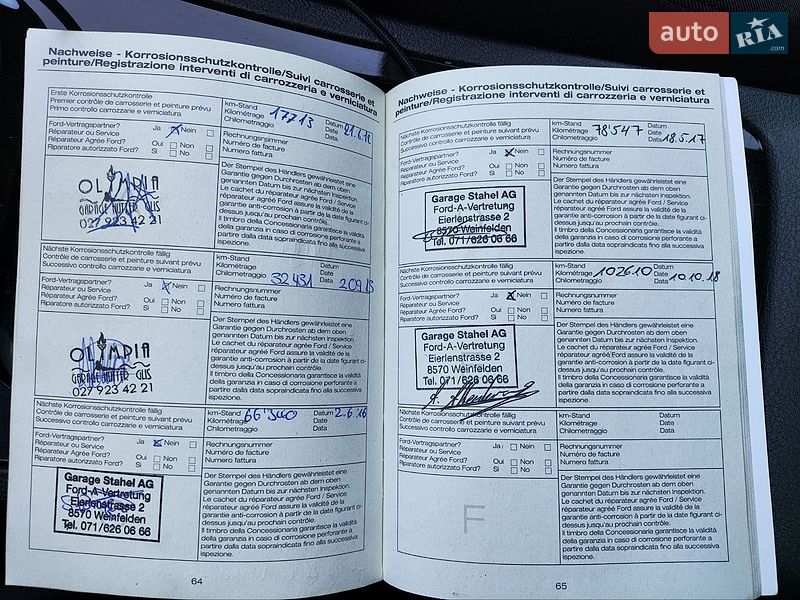 Nachweise - Korrosionsschutzkontrolle/Suivi carrosserie et
peinture/Registrazione interventi di carrozzeria e verniciatura
Erste Korrosionsschutzkontrolle
Premier contrôle de carrosserie et peinture prévu
Primo controllo carrozzerie e verniciatura
km-Stand
Kilométrage
Chilometraggio
17713
Datum
Date
Data
21.6.12
Ford-Vertragspartner?
Réparateur ou Service
Réparateur Agrée Ford?
Riparatore autorizzato Ford?
Ja
Nein
Oui
Non
Si
No
Rechnungsnummer
Numéro de facture
Numero fattura
OLIMPIA
GARAGE
027 923 42 21
Der Stempel des Händlers gewährleistet eine
Garantie gegen Durchrosten ab dem oben
genannten Datum bis zur nächsten Inspektion.
Le cachet du réparateur agréé Ford / Service
réparateur Ford assure la validité de la
garantie anti-corrosion à partir de la date figurant ci-
dessus jusqu'au prochain contrôle.
Il timbro della Concessionaria garantisce la validità
della garanzia in caso di corrosione perforante a
partire dalla data sopraindicata fino alla successiva
ispezione.
Nächste Korrosionsschutzkontrolle fällig
Contrôle de carrosserie et peinture suivant prévu
Successivo controllo carrozzarie e verniciatura
km-Stand
Kilométrage
Chilometraggio
32431
Datum
Date
Data
2.09.13
Ford-Vertragspartner?
Réparateur ou Service
Réparateur Agrée Ford?
Riparatore autorizzato Ford?
Ja
Nein
Oui
Non
Si
No
Rechnungsnummer
Numéro de facture
Numero fattura
OLIMPIA
GARAGE
027 923 42 21
Der Stempel des Händlers gewährleistet eine
Garantie gegen Durchrosten ab dem oben
genannten Datum bis zur nächsten Inspektion.
Le cachet du réparateur agréé Ford / Service
réparateur Ford assure la validité de la
garantie anti-corrosion à partir de la date figurant ci-
dessus jusqu'au prochain contrôle.
Il timbro della Concessionaria garantisce la validità
della garanzia in caso di corrosione perforante a
partire dalla data sopraindicata fino alla successiva
ispezione.
Nächste Korrosionsschutzkontrolle fällig
Contrôle de carrosserie et peinture suivant prévu
Successivo controllo carrozzarie e verniciatura
km-Stand
Kilométrage
Chilometraggio
Datum
Date
Data
2.6.16
Ford-Vertragspartner?
Réparateur ou Service
Réparateur Agrée Ford?
Riparatore autorizzato Ford?
Ja
Nein
Oui
Non
Si
No
Rechnungsnummer
Numéro de facture
Numero fattura
Garage Stahel AG
Ford-A-Vertretung
Eierlenstrasse 2
8570 Weinfelden
Tel. 071/626 06 66
Der Stempel des Händlers gewährleistet eine
Garantie gegen Durchrosten ab dem oben
genannten Datum bis zur nächsten Inspektion.
Le cachet du réparateur agréé Ford / Service
réparateur Ford assure la validité de la
garantie anti-corrosion à partir de la date figurant ci-
dessus jusqu'au prochain contrôle.
Il timbro della Concessionaria garantisce la validità
della garanzia in caso di corrosione perforante a
partire dalla data sopraindicata fino alla successiva
ispezione.
64
Nachweise - Korrosionsschutzkontrolle/Suivi carrosserie et
peinture/Registrazione interventi di carrozzeria e verniciatura
Nächste Korrosionsschutzkontrolle fällig
Contrôle de carrosserie et peinture suivant prévu
Successivo controllo carrozzarie e verniciatura
km-Stand
Kilométrage
Chilometraggio
78'547
Datum
Date
Data
18.5.17
Ford-Vertragspartner?
Réparateur ou Service
Réparateur Agrée Ford?
Riparatore autorizzato Ford?
Ja
Nein
Oui
Non
Si
No
Rechnungsnummer
Numéro de facture
Numero fattura
Garage Stahel AG
Ford-A-Vertretung
Eierlenstrasse 2
8570 Weinfelden
Tel. 071/626 06 66
Der Stempel des Händlers gewährleistet eine
Garantie gegen Durchrosten ab dem oben
genannten Datum bis zur nächsten Inspektion.
Le cachet du réparateur agréé Ford / Service
réparateur Ford assure la validité de la
garantie anti-corrosion à partir de la date figurant ci-
dessus jusqu'au prochain contrôle.
Il timbro della Concessionaria garantisce la validità
della garanzia in caso di corrosione perforante a
partire dalla data sopraindicata fino alla successiva
ispezione.
Nächste Korrosionsschutzkontrolle fällig
Contrôle de carrosserie et peinture suivant prévu
Successivo controllo carrozzarie e verniciatura
km-Stand
Kilométrage
Chilometraggio
102610
Datum
Date
Data
10.10.18
Ford-Vertragspartner?
Réparateur ou Service
Réparateur Agrée Ford?
Riparatore autorizzato Ford?
Ja
Nein
Oui
Non
Si
No
Rechnungsnummer
Numéro de facture
Numero fattura
Garage Stahel AG
Ford-A-Vertretung
Eierlenstrasse 2
8570 Weinfelden
Tel. 071/626 06 66
Der Stempel des Händlers gewährleistet eine
Garantie gegen Durchrosten ab dem oben
genannten Datum bis zur nächsten Inspektion.
Le cachet du réparateur agréé Ford / Service
réparateur Ford assure la validité de la
garantie anti-corrosion à partir de la date figurant ci-
dessus jusqu'au prochain contrôle.
Il timbro della Concessionaria garantisce la validità
della garanzia in caso di corrosione perforante a
partire dalla data sopraindicata fino alla successiva
ispezione.
Nächste Korrosionsschutzkontrolle fällig
Contrôle de carrosserie et peinture suivant prévu
Successivo controllo carrozzarie e verniciatura
km-Stand
Kilométrage
Chilometraggio
Datum
Date
Data
Ford-Vertragspartner?
Réparateur ou Service
Réparateur Agrée Ford?
Riparatore autorizzato Ford?
Ja
Nein
Oui
Non
Si
No
Rechnungsnummer
Numéro de facture
Numero fattura
F
Der Stempel des Händlers gewährleistet eine
Garantie gegen Durchrosten ab dem oben
genannten Datum bis zur nächsten Inspektion.
Le cachet du réparateur agréé Ford / Service
réparateur Ford assure la validité de la
garantie anti-corrosion à partir de la date figurant ci-
dessus jusqu'au prochain contrôle.
Il timbro della Concessionaria garantisce la validità
della garanzia in caso di corrosione perforante a
partire dalla data sopraindicata fino alla successiva
ispezione.
65
auto
RIA
.com